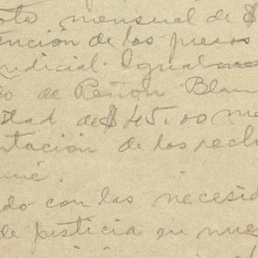 oto mensual de $
ención de los presos
udicial. Igual
o de Peñón Blan
idad de $45.00 me
ntación de los rech
do con las necesid
de justicia en nue